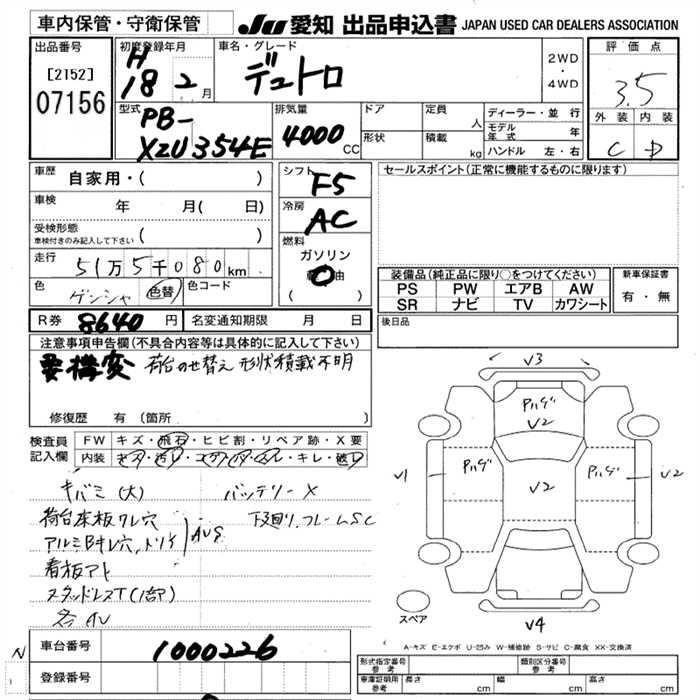 車内保管・守衛保管
JU 愛知 出品申込書 JAPAN USED CAR DEALERS ASSOCIATION
出品番号
[2152]
07156
初度登録年月
H
18 2 月
車名・グレード
デュトロ
2WD
・
4WD
評価点
3.5
外装 内装
C D
型式
PB-
XZU354E
排気量
4000 CC
ドア
形状
定員 人
積載 kg
ディーラー・並行
モデル年式 年
ハンドル 左・右
車歴 自家用・( )
車検 年 月( 日)
受検形態 ( )
車検付きのみ記入して下さい
走行 51万5千080km
色 ゲンシャ 色替 色コード
シフト F5
冷房 AC
燃料
ガソリン
油
( )
セールスポイント(正常に機能するものに限ります)
装備品(純正品に限り○をつけてください)
PS PW エアB AW
SR ナビ TV カワシート
新車保証書
有・無
R券 8640 円 名変通知期限 月 日
後日品
注意事項申告欄(不具合内容等は具体的に記入して下さい)
要構変 荷台のせ替え 形状積載不明
修復歴 有 (箇所
検査員
記入欄
FW キズ・飛石・ヒビ割・リペア跡・X要
内装 キズ・汚レ・コゲ・・キレ・破レ
キバミ(大) バッテリーX
荷台本板ワレ穴 下回り、フレームSC
アルミBキレ穴、トリケ AUG
看板アト
スタッドレスT(1部)
各AU
V3
Pハゲ
V2
V1
Pハゲ
V2
Pハゲ
V2
V4
スペア
A-キズ E-エクボ U-凹み W-補修跡 S-サビ C-腐食 XX-交換済
N
車台番号 1000226
登録番号
形式指定番号 参考
類別区分番号 参考
車庫証明用 参考 長さ cm 幅 cm 高さ cm